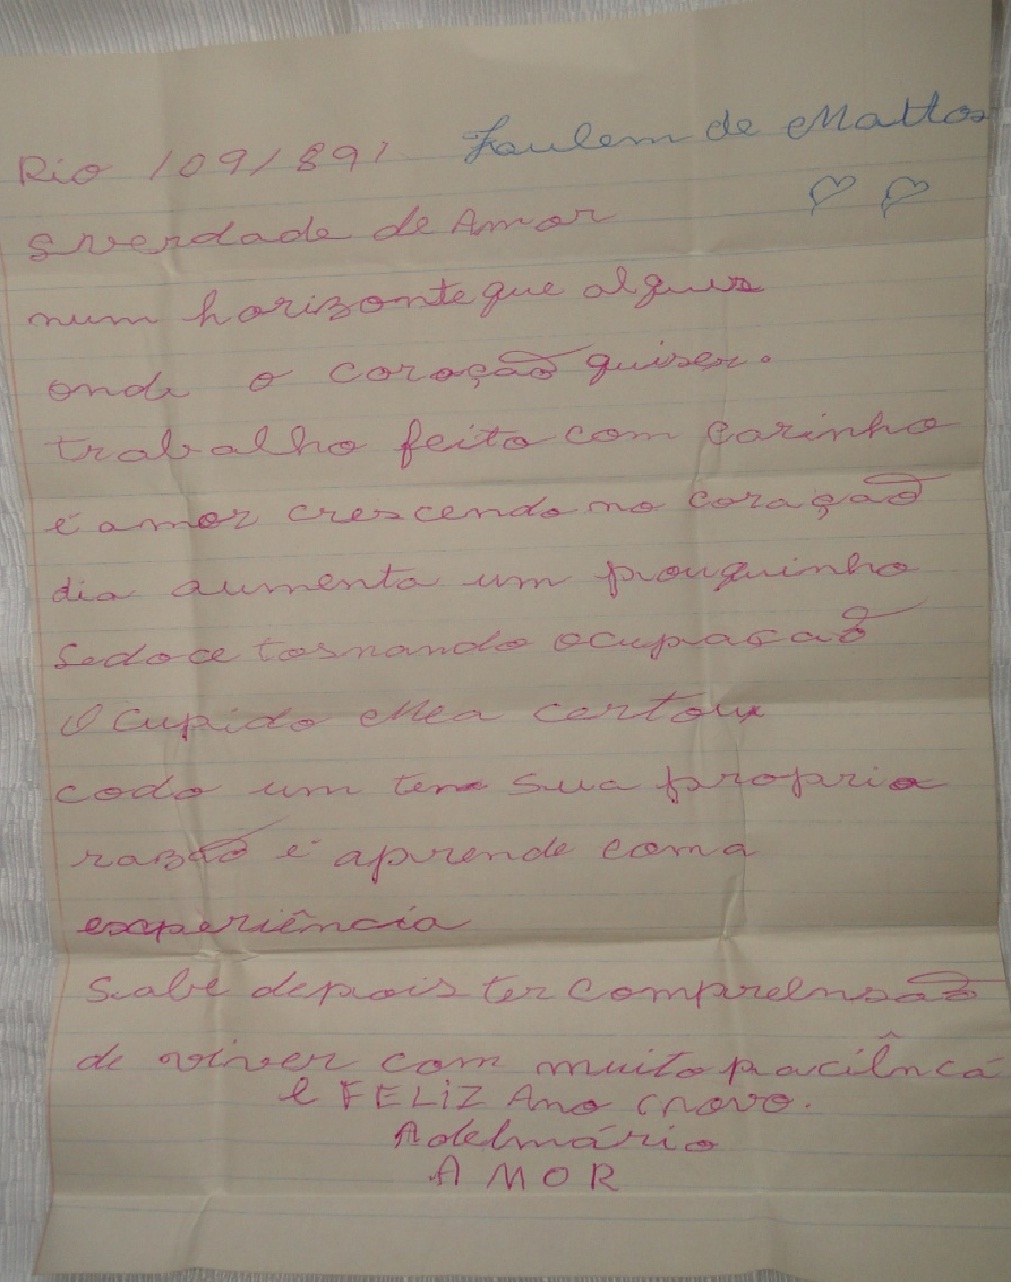 Rio 109/891 Zaulem de Mattos
Sverdade de Amor
num horizonte que alguus
onde o coração quiser.
trabalho feito com çarinho
é amor crescendo no coração
dia aumenta um prouquinho
Sedoce tornando ocupaçaõ
O Cupido Mea certoux
cada um tem sua propria
razão é aprende coma
experiência
Sabe depois ter compreensão
de viver com muito paciênca
e FELIZ Ano novo.
Adelmário
AMOR